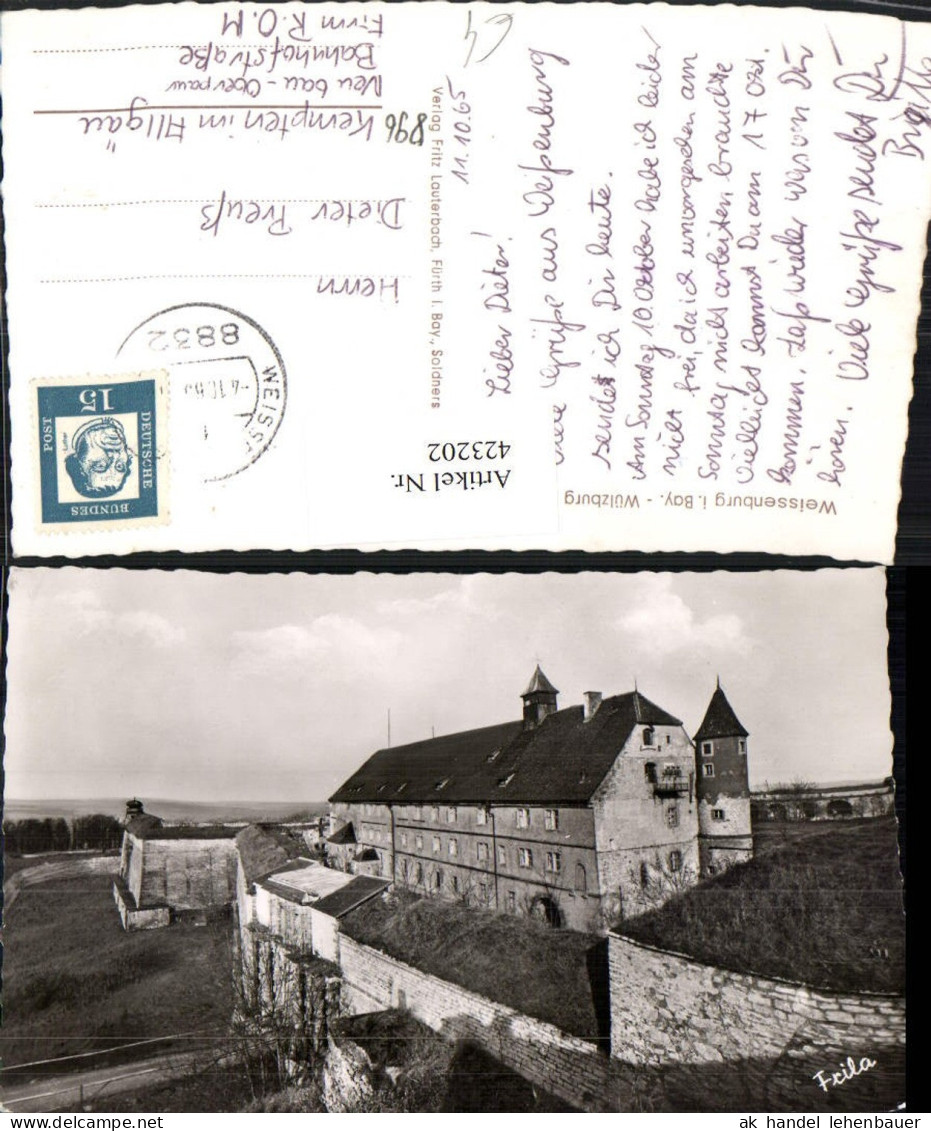 Weissenburg i. Bay. - Wülzburg
11.10.65
Lieber Dieter!
Grüße aus Weißenburg
sendet ich Dir heute.
Am Sonntag 10. Oktober habe ich leider
nicht frei, da ich am
Sonntag nicht arbeiten brauchte
Vielleicht kannst Du am 17 Okt.
kommen. Laß wieder was von Dir
hören. Viele Grüße sendet Dir
Brigitte
Verlag Fritz Lauterbach, Fürth i. Bay., Soldnerstr
Artikel Nr.
423202
DEUTSCHE
BUNDES
POST
15
8832
WEISS
Herrn
Dieter Preuß
896 Kempten im Allgäu
Neubau - Oberpaur
Bahnhofstraße
Firm R.O.M
Frila
ak handel lehenbauer